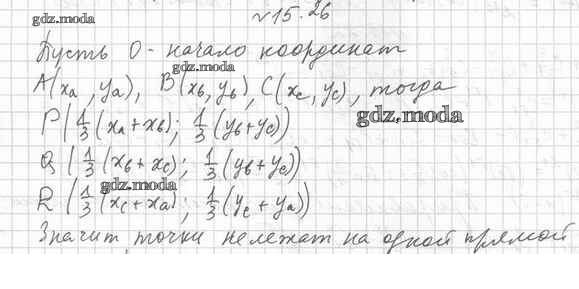 №15.26
gdz.moda
Пусть O - начало координат
gdz.moda
A(xa, ya), B(xb, yb), C(xc, yc), тогда
gdz.moda
P(1/3(xa+xb); 1/3(yb+yc))
Q(1/3(xb+xc); 1/3(yb+yc))
gdz.moda
R(1/3(xc+xa); 1/3(yc+ya))
Значит, точки не лежат на одной прямой